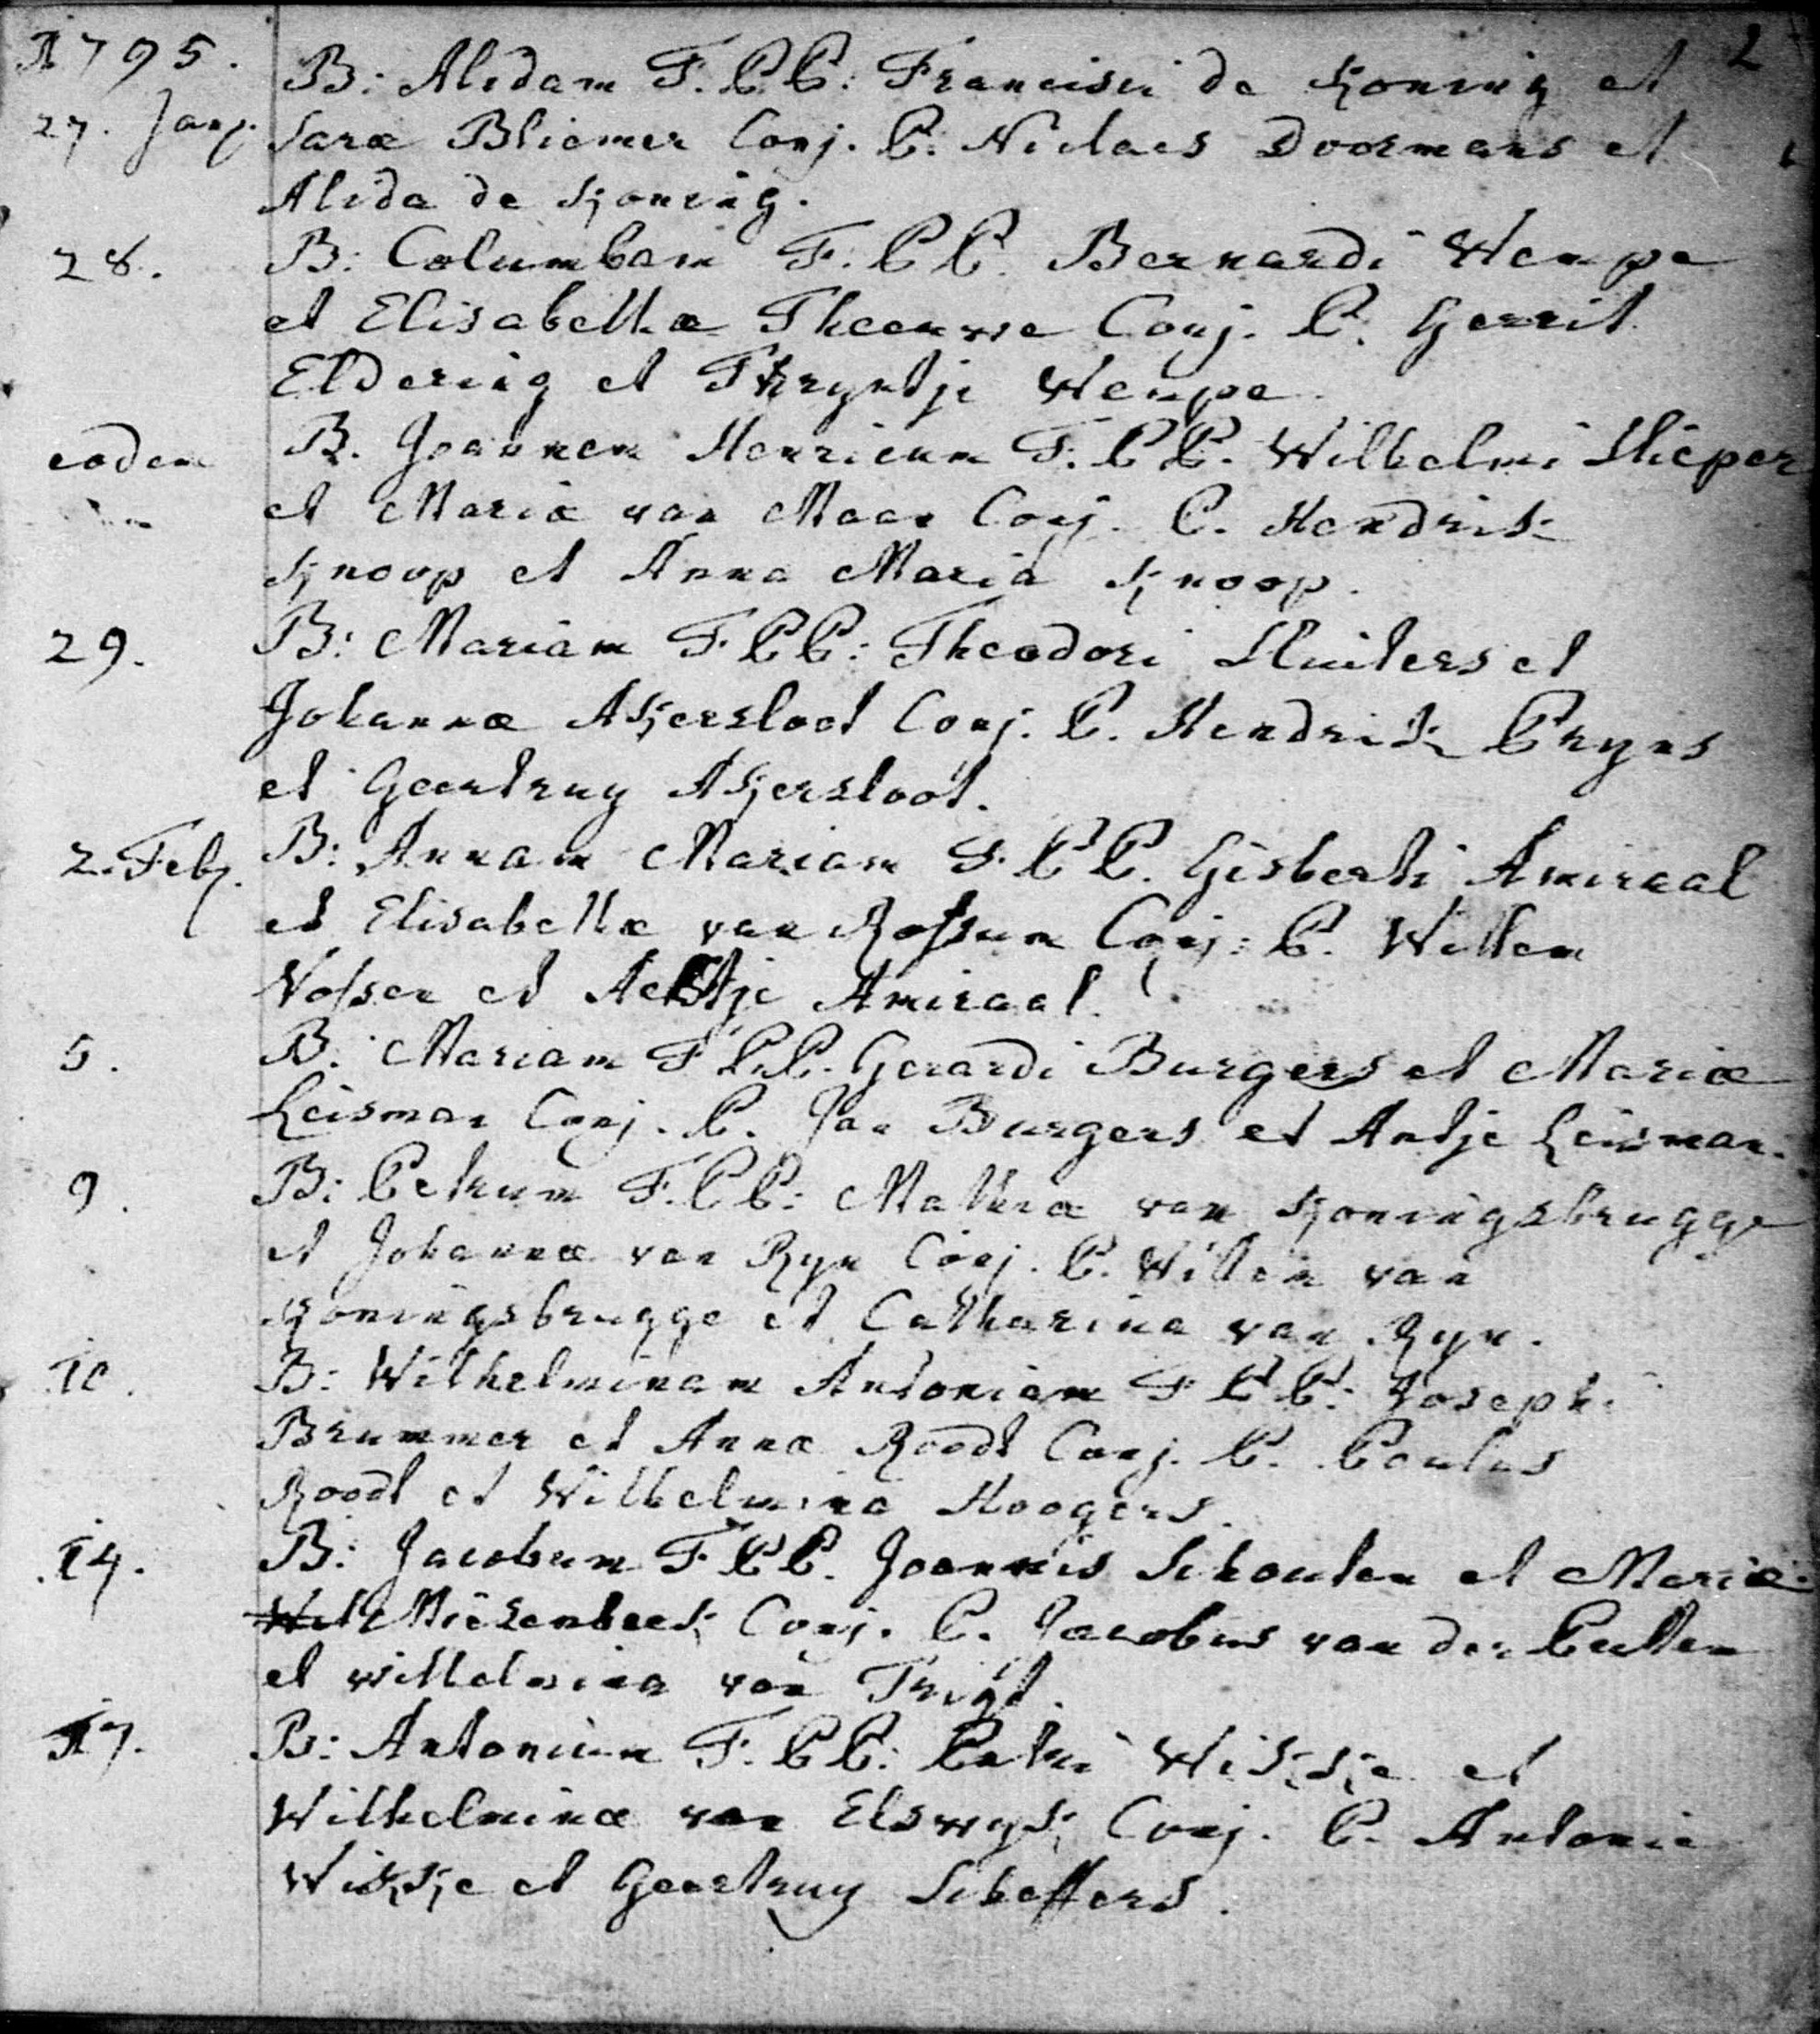 1795. 2
27. Jany. B: Alidam F. P.P: Francisci de Koning et
Saræ Bliemer Conj. P: Niclaes Doormans et
Alida de Koning.
28. B: Columbam F. P.P. Bernardi Wempe
et Elisabethæ Theeuwe Conj. P. Gerrit
Eldering et Thryntje Wempe.
eodem B. Joannem Henricum F. P.P. Wilhelmi Slieper
et Mariæ van Maar Conj. P. Hendrik
Knoop et Anna Maria Knoop.
29. B: Mariam F P.P: Theodori Sluiters et
Johannæ Akersloot Conj. P. Hendrik Pryns
et Geertruy Akersloot.
2. Feby. B: Annam Mariam F. P.P. Gisberti Amiraal
et Elisabethæ van Rossum Conj: P. Willem
Vosser et Aeltje Amiraal.
5. B. Mariam F P.P. Gerardi Burgers et Mariæ
Leisman Conj. P. Jan Burgers et Antje Leisman.
9. B: Petrum F. P.P: Mathiæ van Koningsbrugge
et Johannæ van Ryn Conj. P. Willem van
Koningsbrugge et Catharina van Ryn.
10. B: Wilhelminam Antoniam F P.P: Josephi
Brummer et Annæ Roodt Conj. P. Paulus
Roodt et Wilhelmina Hoogers.
14. B: Jacobum F P.P. Joannis Schouten et Mariæ
Miezenbeek Conj. P. Jacobus van der Putten
et Wilhelmina van Trigt.
17. B: Antonium F. P.P: Petri Wikke et
Wilhelminæ van Elswyk Conj. P. Antonie
Wikke et Geertruy Scheffers.